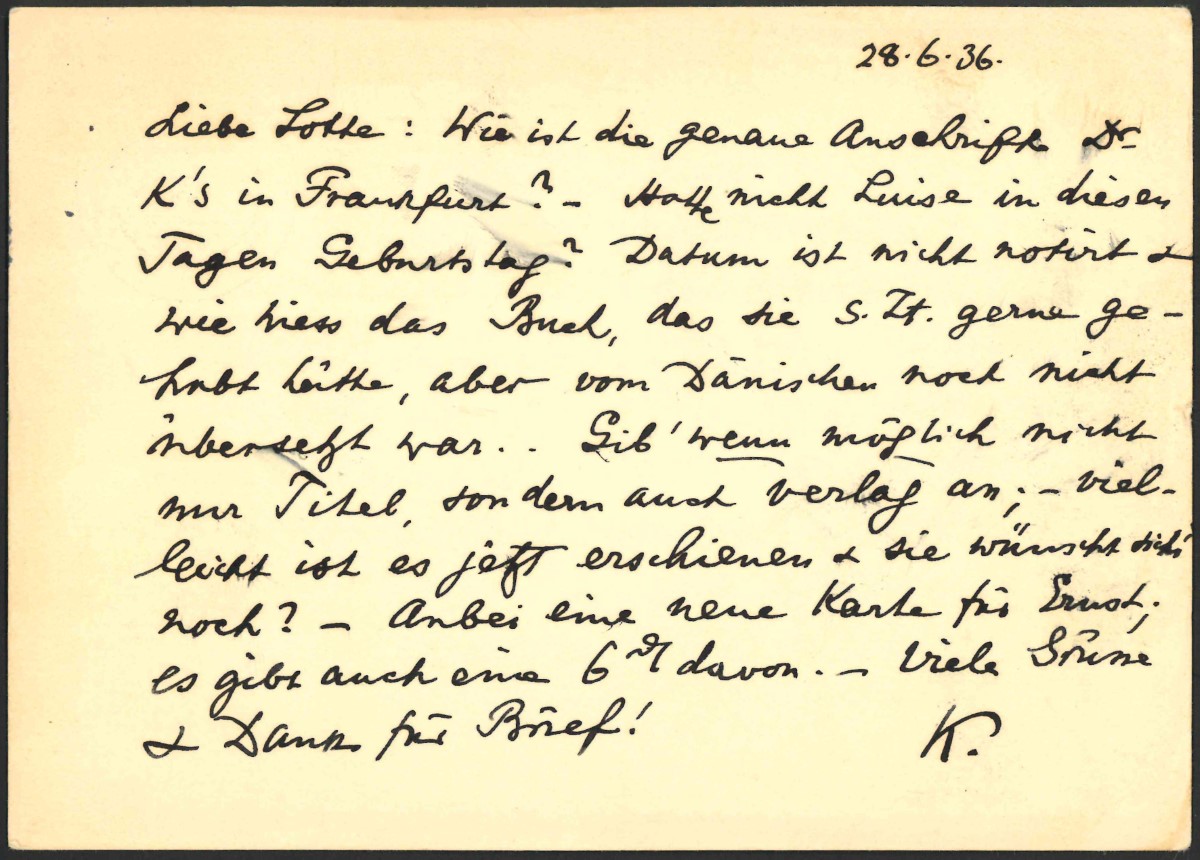 28.6.36.
Liebe Lotte: Wie ist die genaue Anschrift Dr
K's in Frankfurt? - Hatte nicht Luise in diesen
Tagen Geburtstag? Datum ist nicht notirt &
wie hiess das Buch, das sie s. Zt. gerne ge-
habt hätte, aber vom Dänischen noch nicht
übersetzt war.. Gib' wenn möglich nicht
nur Titel, sondern auch Verlag an; - viel-
leicht ist es jetzt erschienen & sie wünscht sichs
noch? - Anbei eine neue Karte für Ernst;
es gibt auch eine 6 ₰ davon. - Viele Grüsse
& Dank für Brief! K.